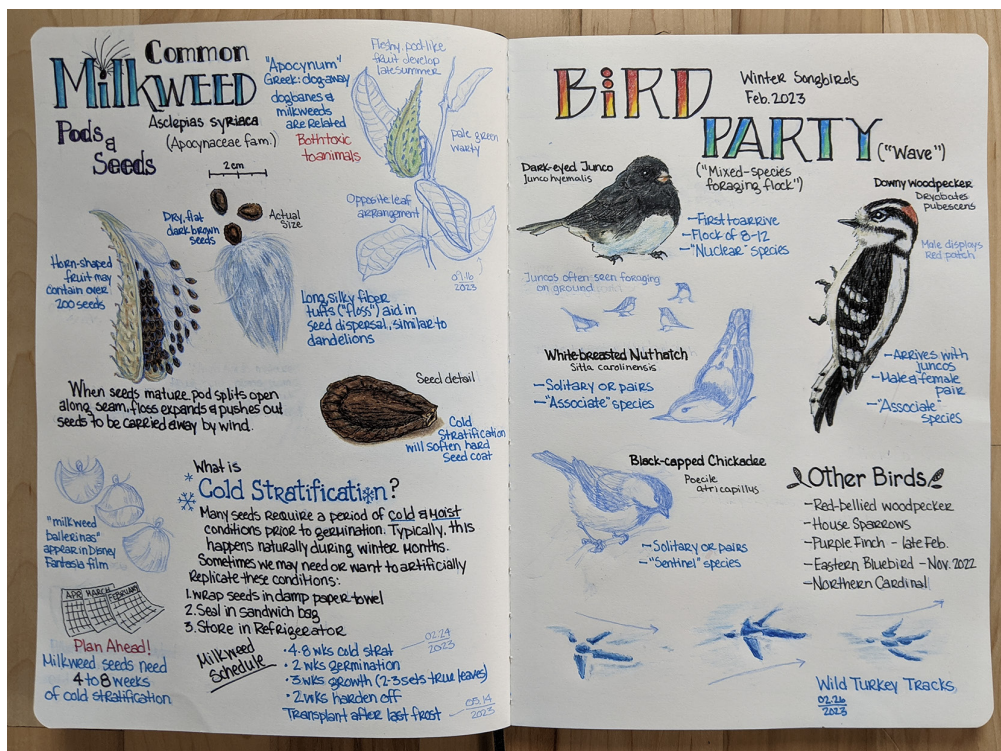 Common
MilkWEED
Pods &
Seeds
Asclepias syriaca
(Apocynaceae fam.)
2cm
"Apocynum"
Greek: dog-away
dogbanes &
milkweeds
are Related
Both toxic
to animals
Fleshy, pod-like
fruit develop
late summer
pale green
warty
Opposite leaf
arrangement
09.16
2023
Dry, flat
dark brown
seeds
Actual
Size
Horn-shaped
fruit may
contain over
200 seeds
Long, silky fiber
tufts ("floss") aid in
seed dispersal, similar to
dandelions
When seeds mature, pod splits open
along seam, floss expands & pushes out
seeds to be carried away by wind.
Seed detail
Cold
Stratification
will soften hard
seed coat
"milkweed
ballerinas"
appear in Disney
Fantasia film
What is
Cold Stratification?
Many seeds require a period of cold & moist
conditions prior to germination. Typically, this
happens naturally during winter months.
Sometimes we may need or want to artificially
Replicate these conditions:
1. wrap seeds in damp paper towel
2. Seal in sandwich bag
3. Store in Refrigerator
APR MARCH FEBRUARY
Plan Ahead!
Milkweed seeds need
4 to 8 weeks
of cold stratification
Milkweed
Schedule
• 4-8 wks cold strat
02.24
2023
• 2 wks germination
• 3 wks growth (2-3 sets true leaves)
• 2 wks harden off
Transplant after last frost
05.14
2023
BiRD
PARTY
("Wave")
Winter Songbirds
Feb. 2023
("Mixed-species
foraging flock")
Dark-eyed Junco
Junco hyemalis
- First to arrive
- Flock of 8-12
- "Nuclear" species
Juncos often seen foraging
on ground
Downy Woodpecker
Dryobates
pubescens
Male displays
Red patch
- Arrives with
juncos
- Male & female
pair
- "Associate"
species
White-breasted Nuthatch
Sitta carolinensis
- Solitary or pairs
- "Associate" species
Black-capped Chickadee
Poecile
atricapillus
- Solitary or pairs
- "Sentinel" species
Other Birds
- Red-bellied woodpecker
- House Sparrows
- Purple Finch - late Feb.
- Eastern Bluebird - Nov. 2022
- Northern Cardinal
Wild Turkey Tracks
02.26
2023